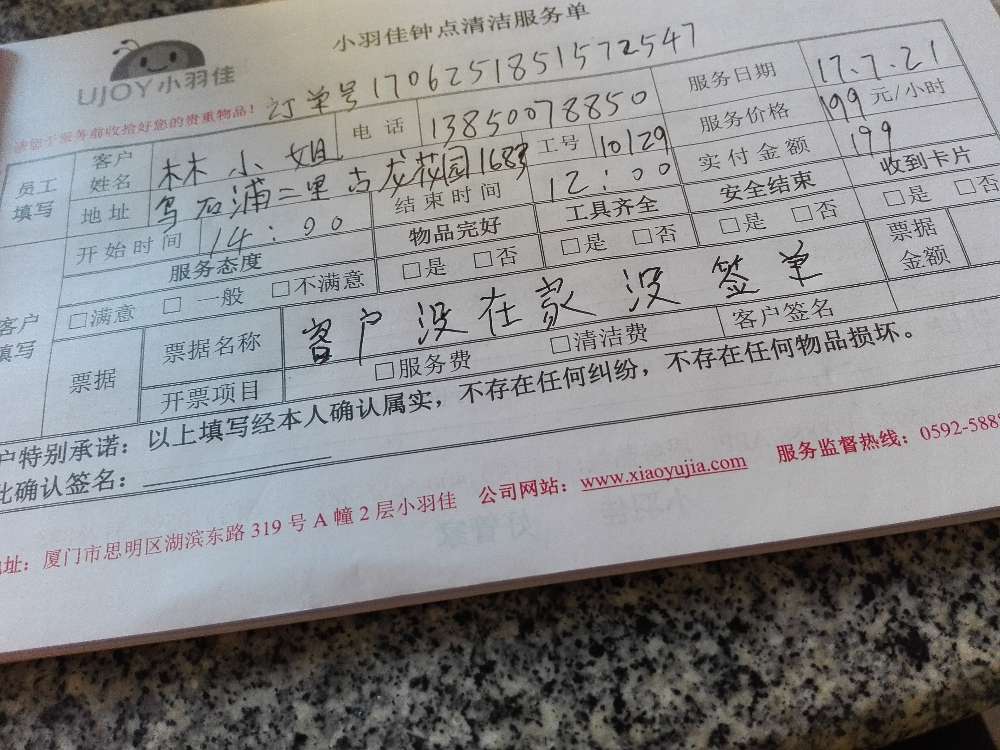 小羽佳钟点清洁服务单
UJOY小羽佳
请您于服务前收拾好您的贵重物品！ 订单号17062518515725​47
员工填写 客户姓名 林小姐 电话 13850078850 服务日期 17.7.21
地址 乌石浦二里古龙花园1683 工号 10129 服务价格 199元/小时
开始时间 14:00 结束时间 12:00 实付金额 199
客户填写 服务态度 物品完好 工具齐全 安全结束 收到卡片
□满意 □一般 □不满意 □是 □否 □是 □否 □是 □否 □是 □否
票据 票据名称 客户没在家没签单 票据金额
开票项目 □服务费 □清洁费 客户签名
户特别承诺：以上填写经本人确认属实，不存在任何纠纷，不存在任何物品损坏。
此确认签名：
地址：厦门市思明区湖滨东路319号A幢2层小羽佳 公司网站：www.xiaoyujia.com 服务监督热线：0592-5888